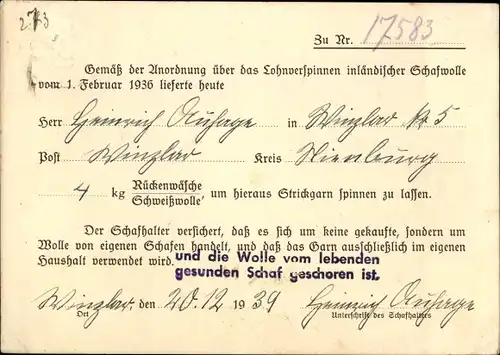 273
Zu Nr. 17583
Gemäß der Anordnung über das Lohnverspinnen inländischer Schafwolle
vom 1. Februar 1936 lieferte heute
Herr Heinrich Ruhage in Winzlar Nr 5
Post Winzlar Kreis Nienburg
4 kg Rückenwäsche
Schweißwolle um hieraus Strickgarn spinnen zu lassen.
Der Schafhalter versichert, daß es sich um keine gekaufte, sondern um
Wolle von eigenen Schafen handelt, und daß das Garn ausschließlich im eigenen
Haushalt verwendet wird. und die Wolle vom lebenden
gesunden Schaf geschoren ist.
Winzlar, den 20.12 1939 Heinrich Ruhage
Ort Unterschrift des Schafhalters